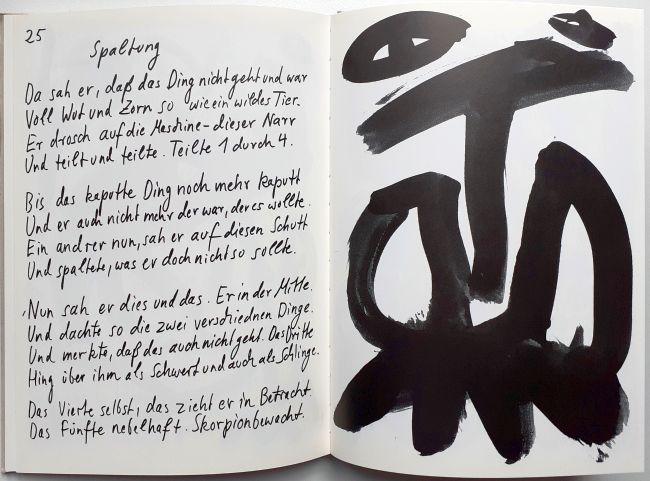 25
Spaltung
Da sah er, daß das Ding nicht geht und war
Voll Wut und Zorn so wie ein wildes Tier.
Er drosch auf die Maschine – dieser Narr
Und teilt und teilte. Teilte 1 durch 4.
Bis das kaputte Ding noch mehr kaputt
Und er auch nicht mehr der war, der es wollte.
Ein andrer nun, sah er auf diesen Schutt
Und spaltete, was er doch nicht so sollte.
Nun sah er dies und das. Er in der Mitte.
Und dachte so die zwei verschiednen Dinge.
Und merkte, daß das auch nicht geht. Das Dritte
Hing über ihm als Schwert und auch als Schlinge.
Das Vierte selbst, das zieht er in Betracht.
Das Fünfte nebelhaft. Skorpionbewacht.